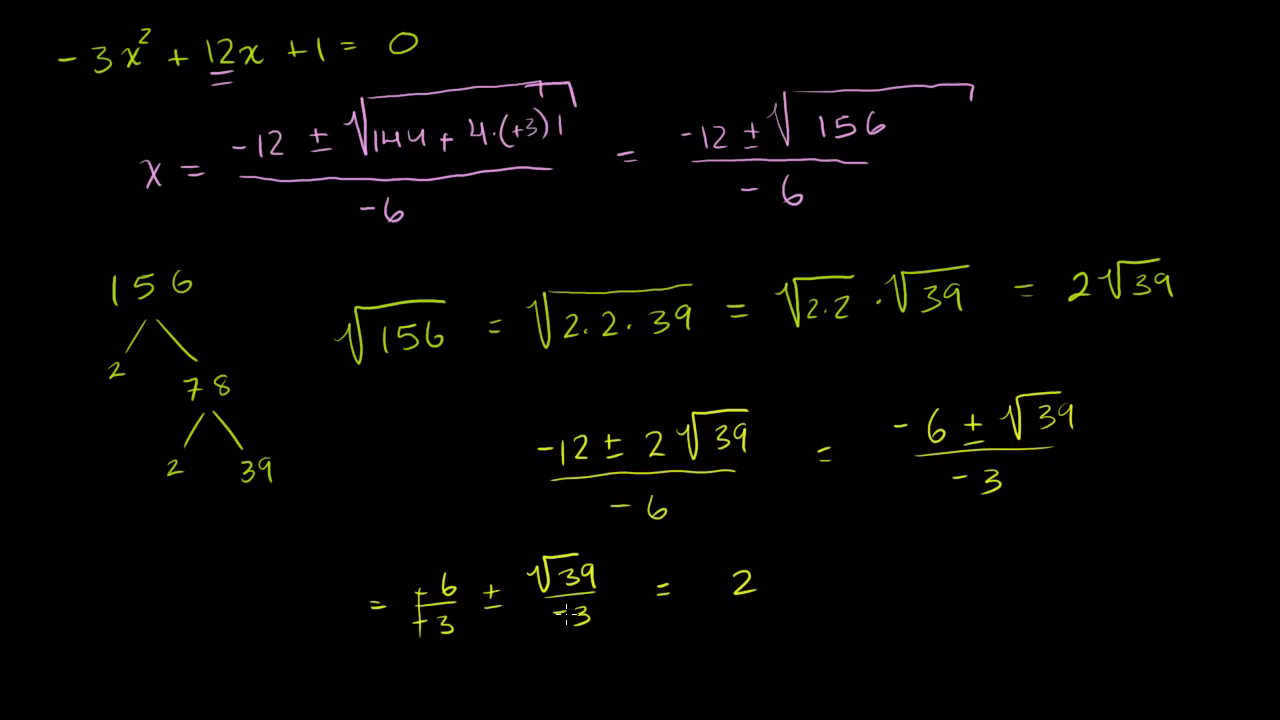 -3x² + 12x + 1 = 0
x = (-12 ± √(144 + 4·(+3)1))/(-6) = (-12 ± √156)/(-6)
156
2 78
2 39
√156 = √(2·2·39) = √(2·2) · √39 = 2√39
(-12 ± 2√39)/(-6) = (-6 ± √39)/(-3)
= (-6)/(-3) ± √39/(-3) = 2